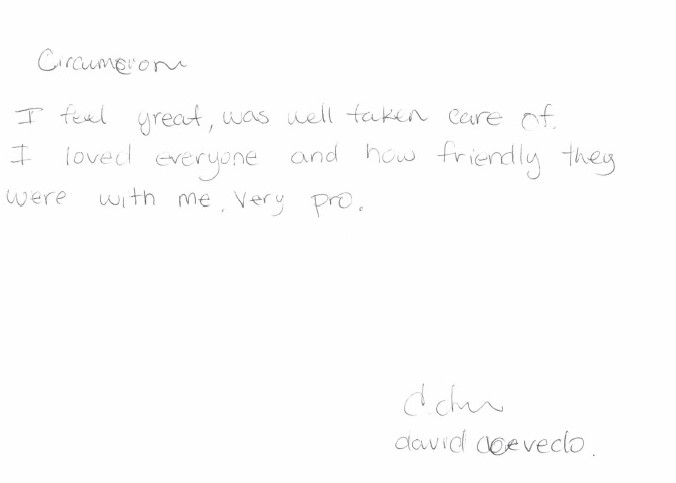 I feel great, was well taken care of.
I loved everyone and how friendly they
were with me. Very pro.
david acevedo.